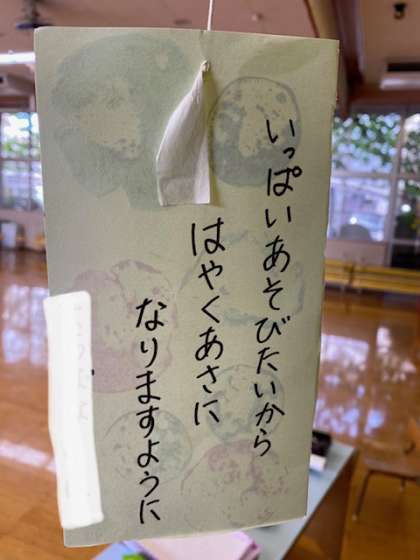 いっぱいあそびたいから
はやくあさに
なりますように